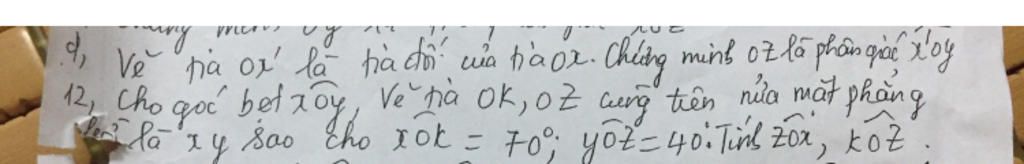 d, Vẽ tia Ox' là tia đối của tia Ox. Chứng minh OZ là phân giác x'Oy
12, Cho góc bẹt xOy, Vẽ tia OK, OZ cùng trên nửa mặt phẳng
là xy sao cho xOk = 70°; yOz = 40°. Tính zOx, kOz.